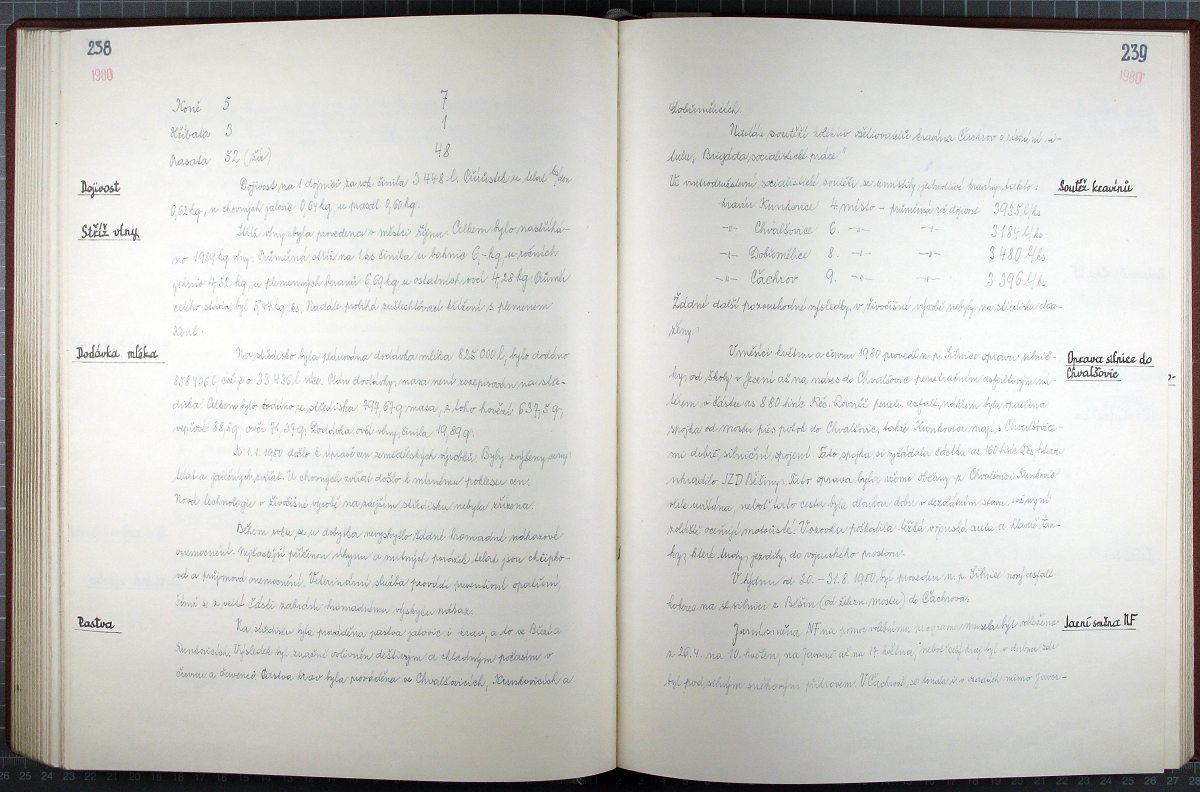 238
1980
Koně 5 7
Hříbata 3 1
Prasata 52 (žír) 48
Dojivost
Dojivost na 1 dojnici za rok činila 3 448 l. Přírůstek u telat ks/den
0,62 kg, u chovných jalovic 0,64 kg, u prasat 0,60 kg.
Stříž vlny
Stříž vlny byla provedena v měsíci říjnu. Celkem bylo nastříhá-
no 1989 kg vlny. Průměrná stříž na 1 ks činila u bahnic 6,- kg, u ročních
jehnic 4,52 kg, u plemenných beranů 6,69 kg, u ostatních ovcí 4,28 kg. Průměr
celého stáda byl 5,44 kg/ks. Nadále probíhá zušlechťovací křížení s plemenem
Kent.
Dodávka mléka
Na středisko byla plánována dodávka mléka 825 000 l, bylo dodáno
858 436 l, což je o 33 436 l více. Plán dodávky masa není rozepisován na stře-
diska. Celkem bylo dodáno ze střediska 797,67 q masa, z toho hovězí 637,5 q,
vepřové 88,5 q, ovčí 71,37 q. Dodávka ovčí vlny činila 19,89 q.
K 1.1. 1980 došlo k úpravě cen zemědělských výrobků. Byly zvýšeny ceny
telat a jatečných zvířat. U chovných zvířat došlo k mírnému poklesu cen.
Nová technologie v živočišné výrobě na zdejším středisku nebyla zřízena.
Během roku se u dobytka nevyskytlo žádné hromadné nákazové
onemocnění. Nejčastější příčinou úhynu a nutných porážek telat jsou chřipko-
vá a průjmová onemocnění. Veterinární služba provádí preventivní opatření,
čímž se z velké části zabrání hromadnému výskytu nákaz.
Pastva
Na středisku byla prováděna pastva jalovic i krav, a to ve
Kunkovicích. Výsledek byl značně ovlivněn deštivým a chladným počasím v
červnu a červenci. Pastva krav byla prováděna ve Chvalšovicích, Kunkovicích a
239
1980
Dobřemělicích.
Nadále soutěží kolektiv ošetřovatelů kravína Čachrov o získání ti-
tulu „Brigáda socialistické práce."
Soutěž kravínů
Ve vnitrodružstevní socialistické soutěži se umístily jednotlivé kravíny takto:
kravín Kunkovice 4. místo - průměrná roč. dojivost 3925 l/ks
-"- Chvalšovice 6. -"- -"- 3184 l/ks
-"- Dobřemělice 8. -"- -"- 3 480 l/ks
-"- Čachrov 9. -"- -"- 3 396 l/ks
Žádné další pozoruhodné výsledky v živočišné výrobě nebyly na středisku dosa-
ženy.
Oprava silnice do
Chvalšovic
V měsíci květnu a červnu 1980 provedl n. p. Silnice opravu silnič-
ky od školy v Jesení až na náves do Chvalšovic penetračním asfaltovým ná-
těrem, v částce as 880 tisíc Kčs. Rovněž penetr. asfalt. nátěrem byla opatřena
spojka od mostu přes potok do Chvalšovic, takže Kunkovice mají s Chvalšovice-
mi dobré silniční spojení. Tato spojka si vyžádala částku as 160 tisíc Kčs, kterou
uhradilo JZD Běšiny. Tato oprava byla všemi občany z Chvalšovic i Kunkovic
velice vítána, neboť tato cesta byla dlouhou dobu v dezolátním stavu, což nyní
zvláště oceňují motoristé. Vozovku poškodila těžká vojenská auta a hlavně tan-
ky, které tudy jezdily do vojenského prostoru.
V týdnu od 20. - 31. 8. 1980 byl proveden n. p. Silnice nový asfalt.
koberec na st. silnici z Běšin (od železn. mostu) do Čachrova.
Jarní směna NF
Jarní směna NF na pomoc volebnímu programu musela být odložena
z 26. 4. na 10. květen, na Javorné až na 17. května, neboť celý kraj byl v dubnu zde
byl pod silným sněhovým příkrovem. V Čachrově se konala i v osadách mimo Javor-